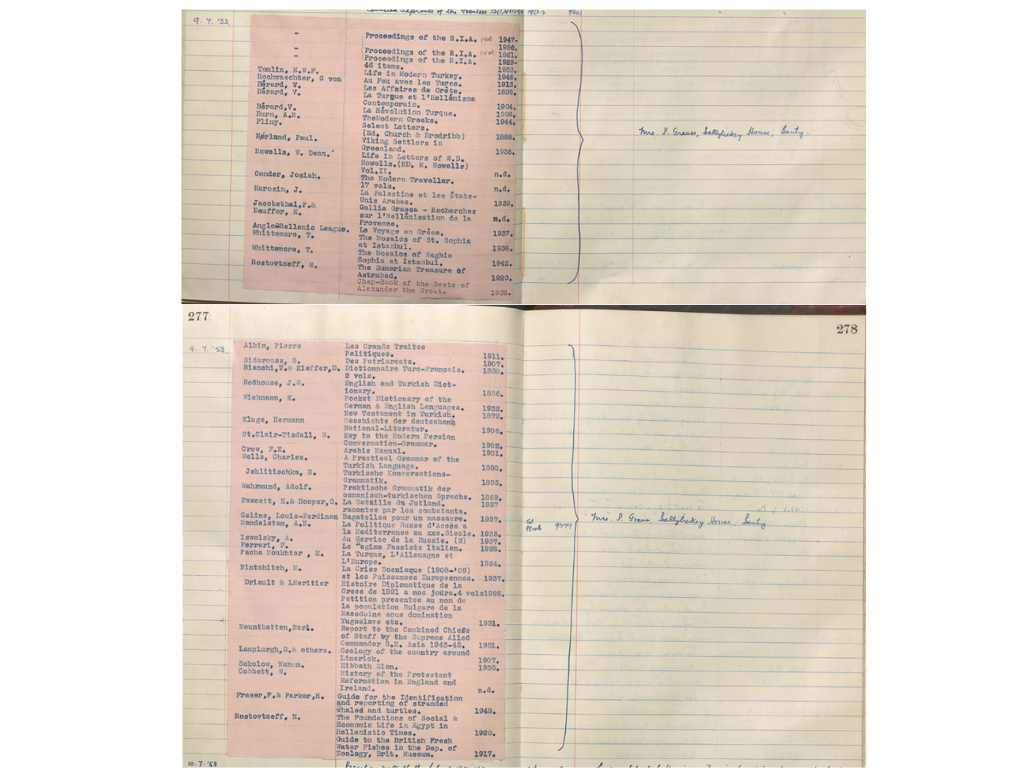 9. 7. '53
" Proceedings of the R.I.A. 1947-
1950.
" Proceedings of the R.I.A. 1861.
" Proceedings of the R.I.A. 1929-
46 items. 1953.
Tomlin, E.W.F. Life in Modern Turkey. 1946.
Hochwaechter, G von Au Feu avec les Turcs. 1913.
Bérard, V. Les Affaires de Crète. 1898.
Bérard, V. La Turque et l'Hellénisme
Contemporain. 1904.
Bérard,V. La Révolution Turque. 1909.
Burn, A.R. TheModern Greeks. 1944.
Pliny. Select Letters.
(Ed. Church & Brodribb) 1888.
Nørlund, Paul. Viking Settlers in
Greenland. 1936.
Howells, W. Dean. Life in Letters of W.D.
Howells.(ED. M. Howells)
Vol.II. n.d.
Conder, Josiah. The Modern Traveller.
17 vols. n.d.
Harosin, J. La Palestine et les États-
Unis Arabes. 1939.
Jacobsthal,P.& Gallia Graeca - Recherches
Neuffer, E. sur l'Hellénisation de la
Provence. n.d.
Anglo-Hellenic League. Le Voyage en Grèce. 1937.
Whittemore, T. The Mosaics of St. Sophia
at Istanbul. 1936.
Whittemore, T. The Mosaics of Haghia
Sophia at Istanbul. 1942.
Rostovtzeff, M. The Sumerian Treasure of
Astrabad. 1920.
Chap-Book of the Bests of
Alexander the Great. 1935.
Mrs. P. Graves, Ballylickey House, Bantry.
277
278
9. 7. '53
Albin, Pierre Les Grands Traites
Politiques. 1911.
Sidarouss, S. Des Patriarcats. 1907.
Bianchi,T.& Kieffer,D. Dictionnaire Turc-Francais. 1850.
2 vols.
Redhouse, J.W. English and Turkish Dict-
ionary. 1856.
Wichmann, K. Pocket Dictionary of the
German & English Languages. 1952.
New Testament in Turkish. 1872.
Kluge, Hermann Geschichte der deutschen
National-Literatur. 1906.
St.Clair-Tisdall, W. Key to the Modern Persian
Conversation-Grammar. 1902.
Crow, F.E. Arabic Manual. 1901.
Wells, Charles. A Practical Grammar of the
Turkish Language. 1880.
Jehlitischka, H. Turkische Konversations-
Grammatik. 1895.
Wahrmund, Adolf. Praktische Grammatik der
osmanisch-turkischen Sprache. 1869.
Fawcett, H.& Hooper,G. La Bataille du Jutland. 1927
racontee par les combatants.
Celine, Louis-Ferdinan Bagatelles pour un massacre. 1937.
Mandelstam, A.N. La Politique Russe d'Accès a
la Mediterranee au xxe.Siecle. 1935.
Iswolsky, A. Au Service de la Russie. (2) 1937.
Ferrari, F. Le "egime Fasciste Italien. 1928.
Pacha Moukhtar , M. La Turque, L'Allemagne et
L'Europe. 1924.
Nintchitch, M. La Crise Bosniaque (1908-'09)
et les Puissances Europeennes. 1937.
Driault & LHeritier Histoire Diplomatique de la
Grece de 1821 a nos jours.4 vols1926.
Petition presentee au nom de
la population Bulgare de la
Macedoine sous domination
Yugoslave etc. 1931.
Mountbatten,Earl. Report to the Combined Chiefs
of Staff by the Supreme Allied
Commander S.E. Asia 1943-45. 1951.
Lamplurgh,G.& others. Geology of the country around
Limerick. 1907.
Sokolow, Nahum. Hibbath Zion. 1935.
Cobbett, W. History of the Protestant
Reformation in England and
Ireland. n.d.
Fraser,F.& Parker,H. Guide for the Identification
and reporting of stranded
whales and turtles. 1949.
Rostovtzeff, M. The Foundations of Social &
Economic Life in Egypt in
Hellenistic Times. 1920.
Guide to the British Fresh
Water Fishes in the Dep. of
Zoology, Brit. Museum. 1917.
Mrs. P. Graves, Ballylickey House, Bantry
10. 7. '53